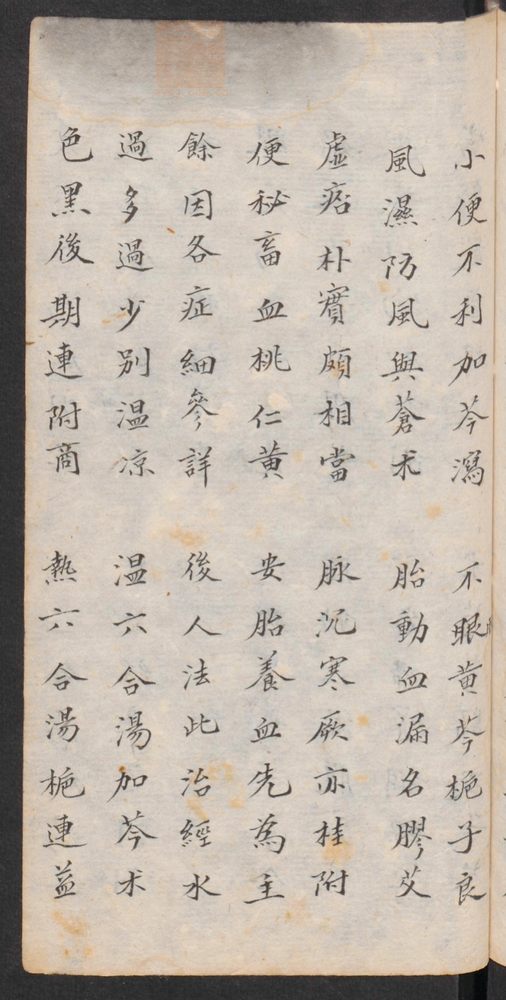 小便不利加芩瀉　不眠黃芩梔子良
風濕防風與蒼朮　胎動血漏名膠艾
虛痞朴實頗相當　脉沉寒厥亦桂附
便秘畜血桃仁黃　安胎養血先為主
餘因各症細參詳　後人法此治經水
過多過少別温凉　温六合湯加芩朮
色黑後期連附商　熱六合湯梔連益